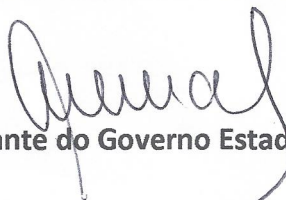 ante do Governo Estad